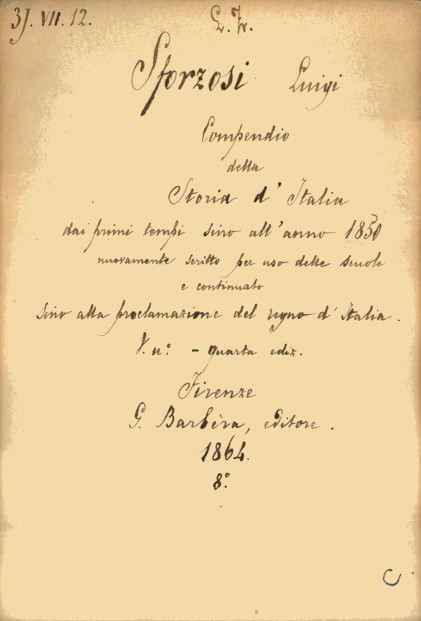 31. VII. 12.
Sforzosi Luigi
Compendio
della
Storia d'Italia
dai primi tempi sino all'anno 1850
nuovamente scritto per uso delle scuole
e continuato
sino alla proclamazione del regno d'Italia.
V. uº - quarta ediz.
Firenze
G. Barbèra, editore.
1864.
8º.
C